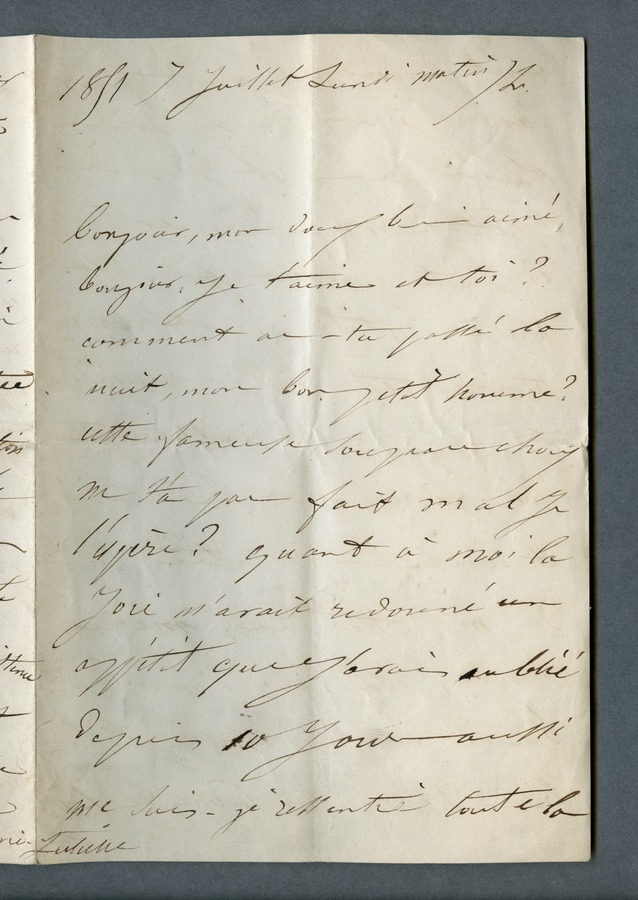 1851 7 Juillet Lundi matin 7 h.
bonjour, mon doux bien aimé,
bonjour, je t'aime et toi ?
comment as-tu passé la
nuit, mon bon petit homme ?
cette fameuse soupe aux choux
ne t'a pas fait mal je
l'espère ? quant à moi la
Joie m'avait redonné un
appétit que J'avais oublié
depuis 10 Jours aussi
me suis-je ressentie toute la
Juliette